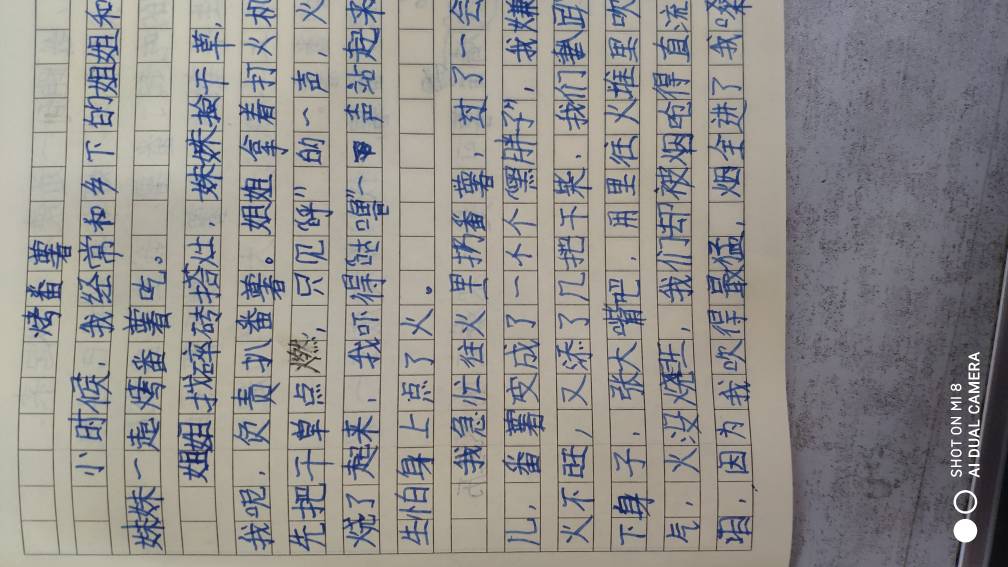 烤番薯
小时候，我经常和乡下的姐姐和
妹妹一起烤番薯吃。
姐姐找碎砖搭灶，妹妹捡干草，
我呢，负责扒番薯。姐姐拿着打火机
先把干草点燃，只见“呯”的一声，火
烧了起来，我吓得哒“噻”一声站起来
生怕身上点了火。
我急忙往火里扔番薯，过了一会
儿，番薯变成了一个个“黑胖子”，我嫌
火不旺，又添了几把干柴，我们
下身子，张大嘴巴，用里往火堆里吹
气，火没烧旺，我们却被烟呛得直流
泪，因为我吹得最猛，烟全进了我
SHOT ON MI 8
AI DUAL CAMERA